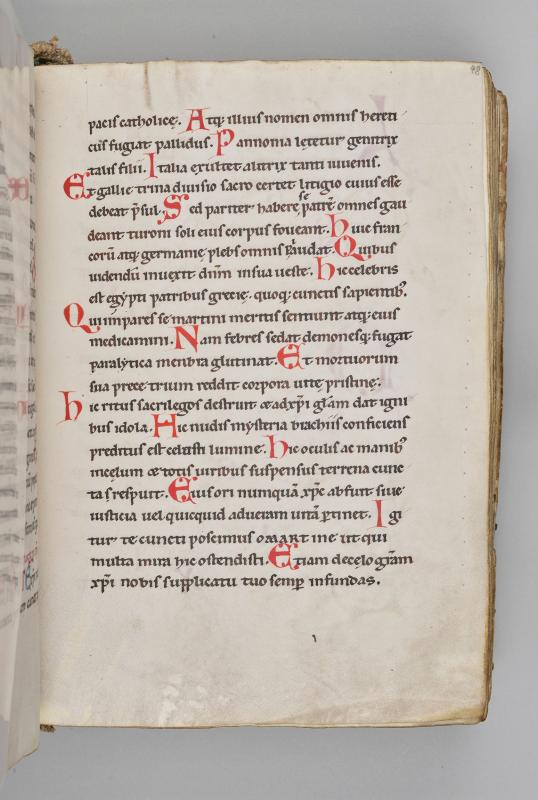 98
pacis catholicę. Atq; illius nomen omnis hereti
cus fugiat pallidus. Pannonia lętetur genitrix
talis filii. Italia exultet alitrix tanti iuuenis.
Et gallie trina diuisio sacro certet litigio cuius esse
debeat p̄sul. Sed pariter habere se patrē omnes gau
deant turoni soli eius corpus foueant. Huic fran
corū atq; germanię plebs omnis plaudat. Quibus
uidendū inuexit dn̄m in sua ueste. Hic celebris
est egypti patribus grecię quoq; cunctis sapientib9.
Qui impares se martini meritis sentiunt atq; eius
medicamini. Nam febres sedat demonesq; fugat
paralytica membra glutinat. Et mortuorum
sua prece trium reddit corpora uite pristinę.
Hic ritus sacrilegos destruit & ad xp̄i glām dat igni
bus idola. Hic nudis mysteria brachiis conficiens
preditus est celesti lumine. Hic oculis ac manib9
in celum & totis uiribus suspensus terrena cunc
ta respuit. Eius ori numquā xp̄c abfuit siue
iusticia uel quicquid ad ueram uitā ꝑtinet. Igi
tur te cuncti poscimus o MARTINE ut qui
multa mira hic ostendisti. Etiam de cęlo grām
xp̄i nobis supplicatu tuo semꝑ infundas.